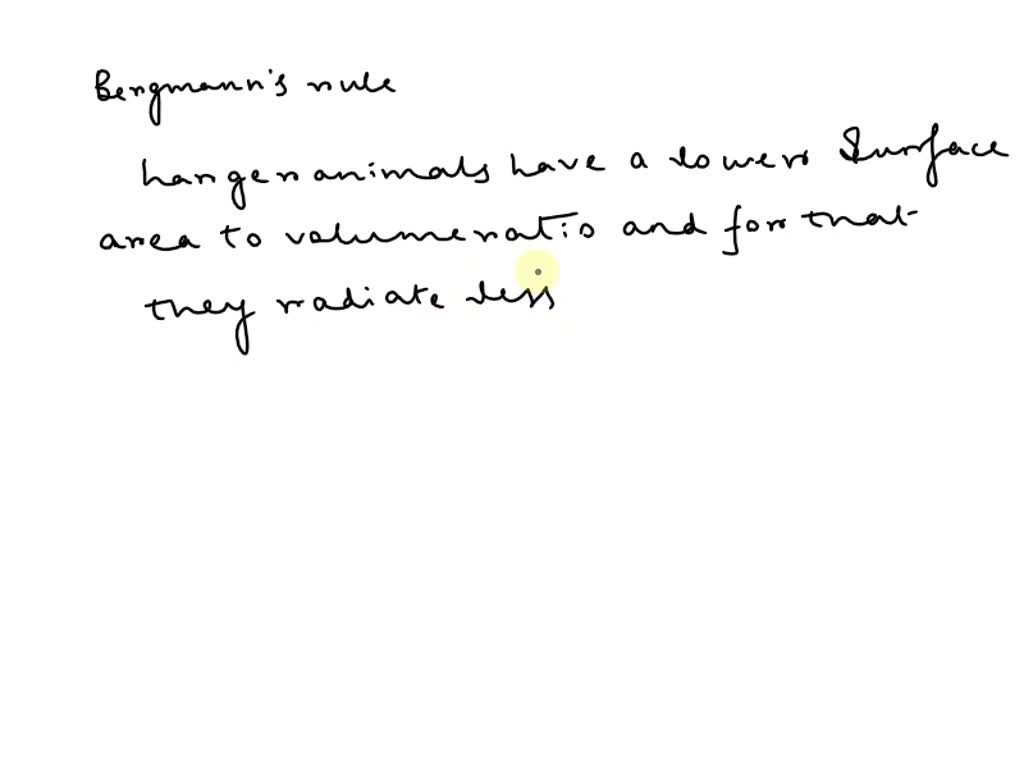 Bergmann's rule
Larger animals have a lower Surface
area to volume ratio and for that
they radiate less